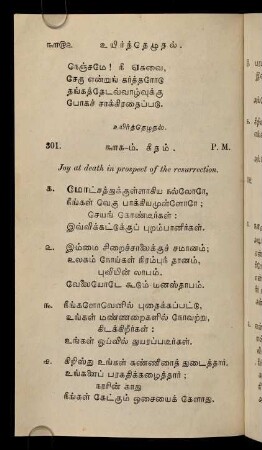 உயிர்த்தெழுதல்.
நெஞ்சமே! நீ ஏகவை,
சேகு என்றுங் கர்த்தரோடு
தங்கத்தேடவ்வாழ்வுக்கு
போகச் சாக்கிரதைப்படு.
உயிர்த்தெழுதல்.
301. ௩௱க-ம். கீதம். P. M.
Joy at death in prospect of the resurrection.
க. மோட்சத்துக்குள்ளாகிய நல்லோரே,
நீங்கள் வெகு பாக்கியமுள்ளோரே;
செயங் கொண்டீர்கள்:
இவ்விக்கட்டுக்குப் புறம்பானீர்கள்.
உ. இம்மை சிறைச்சாலைக்குச் சமானம்;
உலகம் நோய்கள் நிரம்புந் தானம்,
புவியின் லாபம்.
வேலையோடே கூடும் மனஸ்தாபம்.
௩. நீங்களோவெனில் புதைக்கப்பட்டு,
உங்கள் மண்ணறைகளில் நோவற்று,
கிடக்கிறீர்கள்:
உங்கள் ஓய்வில் துயரப்படீர்கள்.
௪. கிறிஸ்து உங்கள் கண்ணீரைத் துடைத்தார்.
உங்களைப் பரகதிக்கழைத்தார்;
நரரின் காது
நீங்கள் கேட்கும் ஓசையைக் கேளாது.